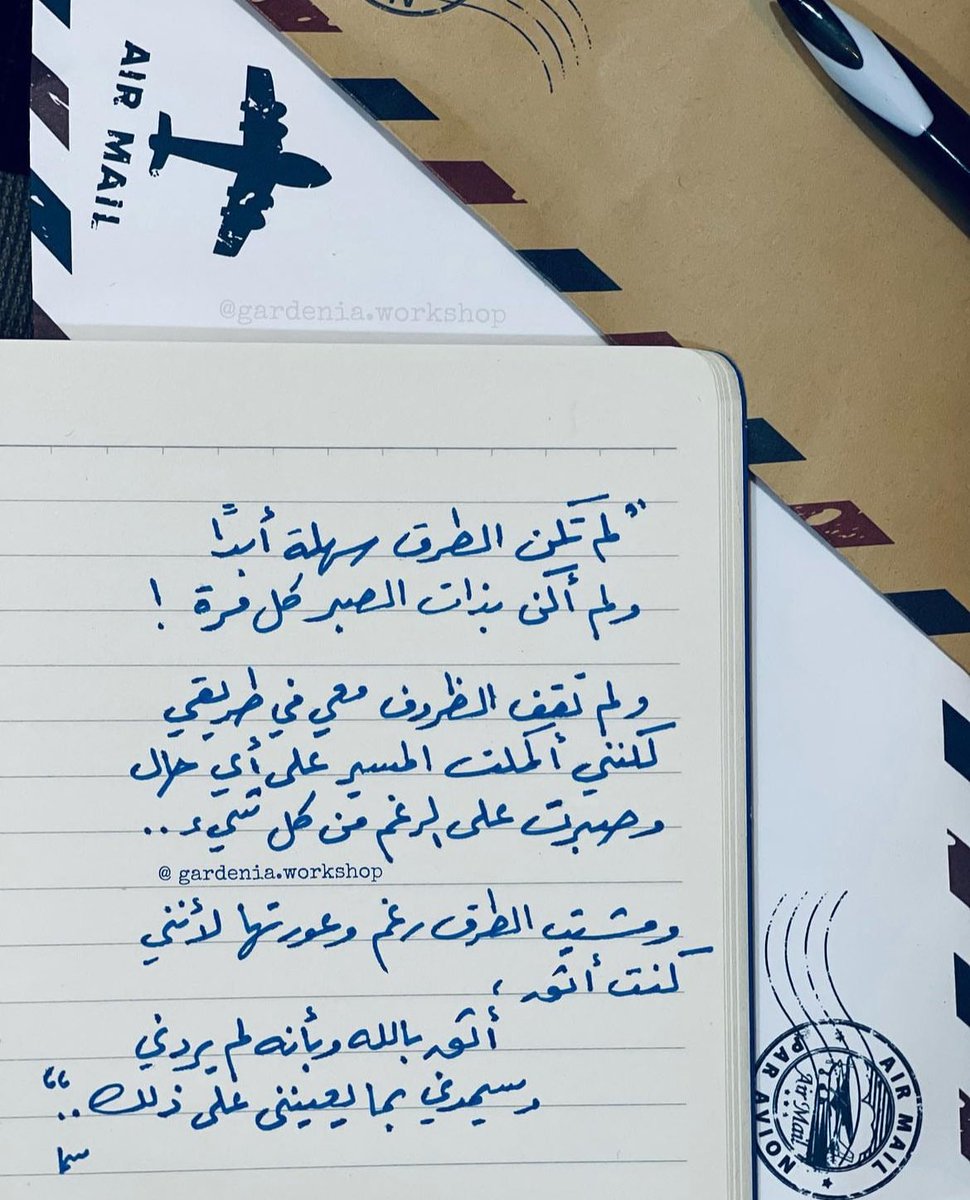 AIR MAIL
@gardenia.workshop
"لم تكن الطرق سهلة أبدًا
ولم أكن بذات الصبر كل مرة !
ولم تقف الظروف معي في طريقي
لكنني أكملت المسير على أي حال
وصبرت على الرغم من كل شيء..
@ gardenia.workshop
ومشيت الطرق رغم وعورتها لأنني
كنت أثق ،
أثق بالله وبأنه لم يردني
وسيمدني بما يعينني على ذلك.."
سما
AIR MAIL
PAR AVION
Air Mail